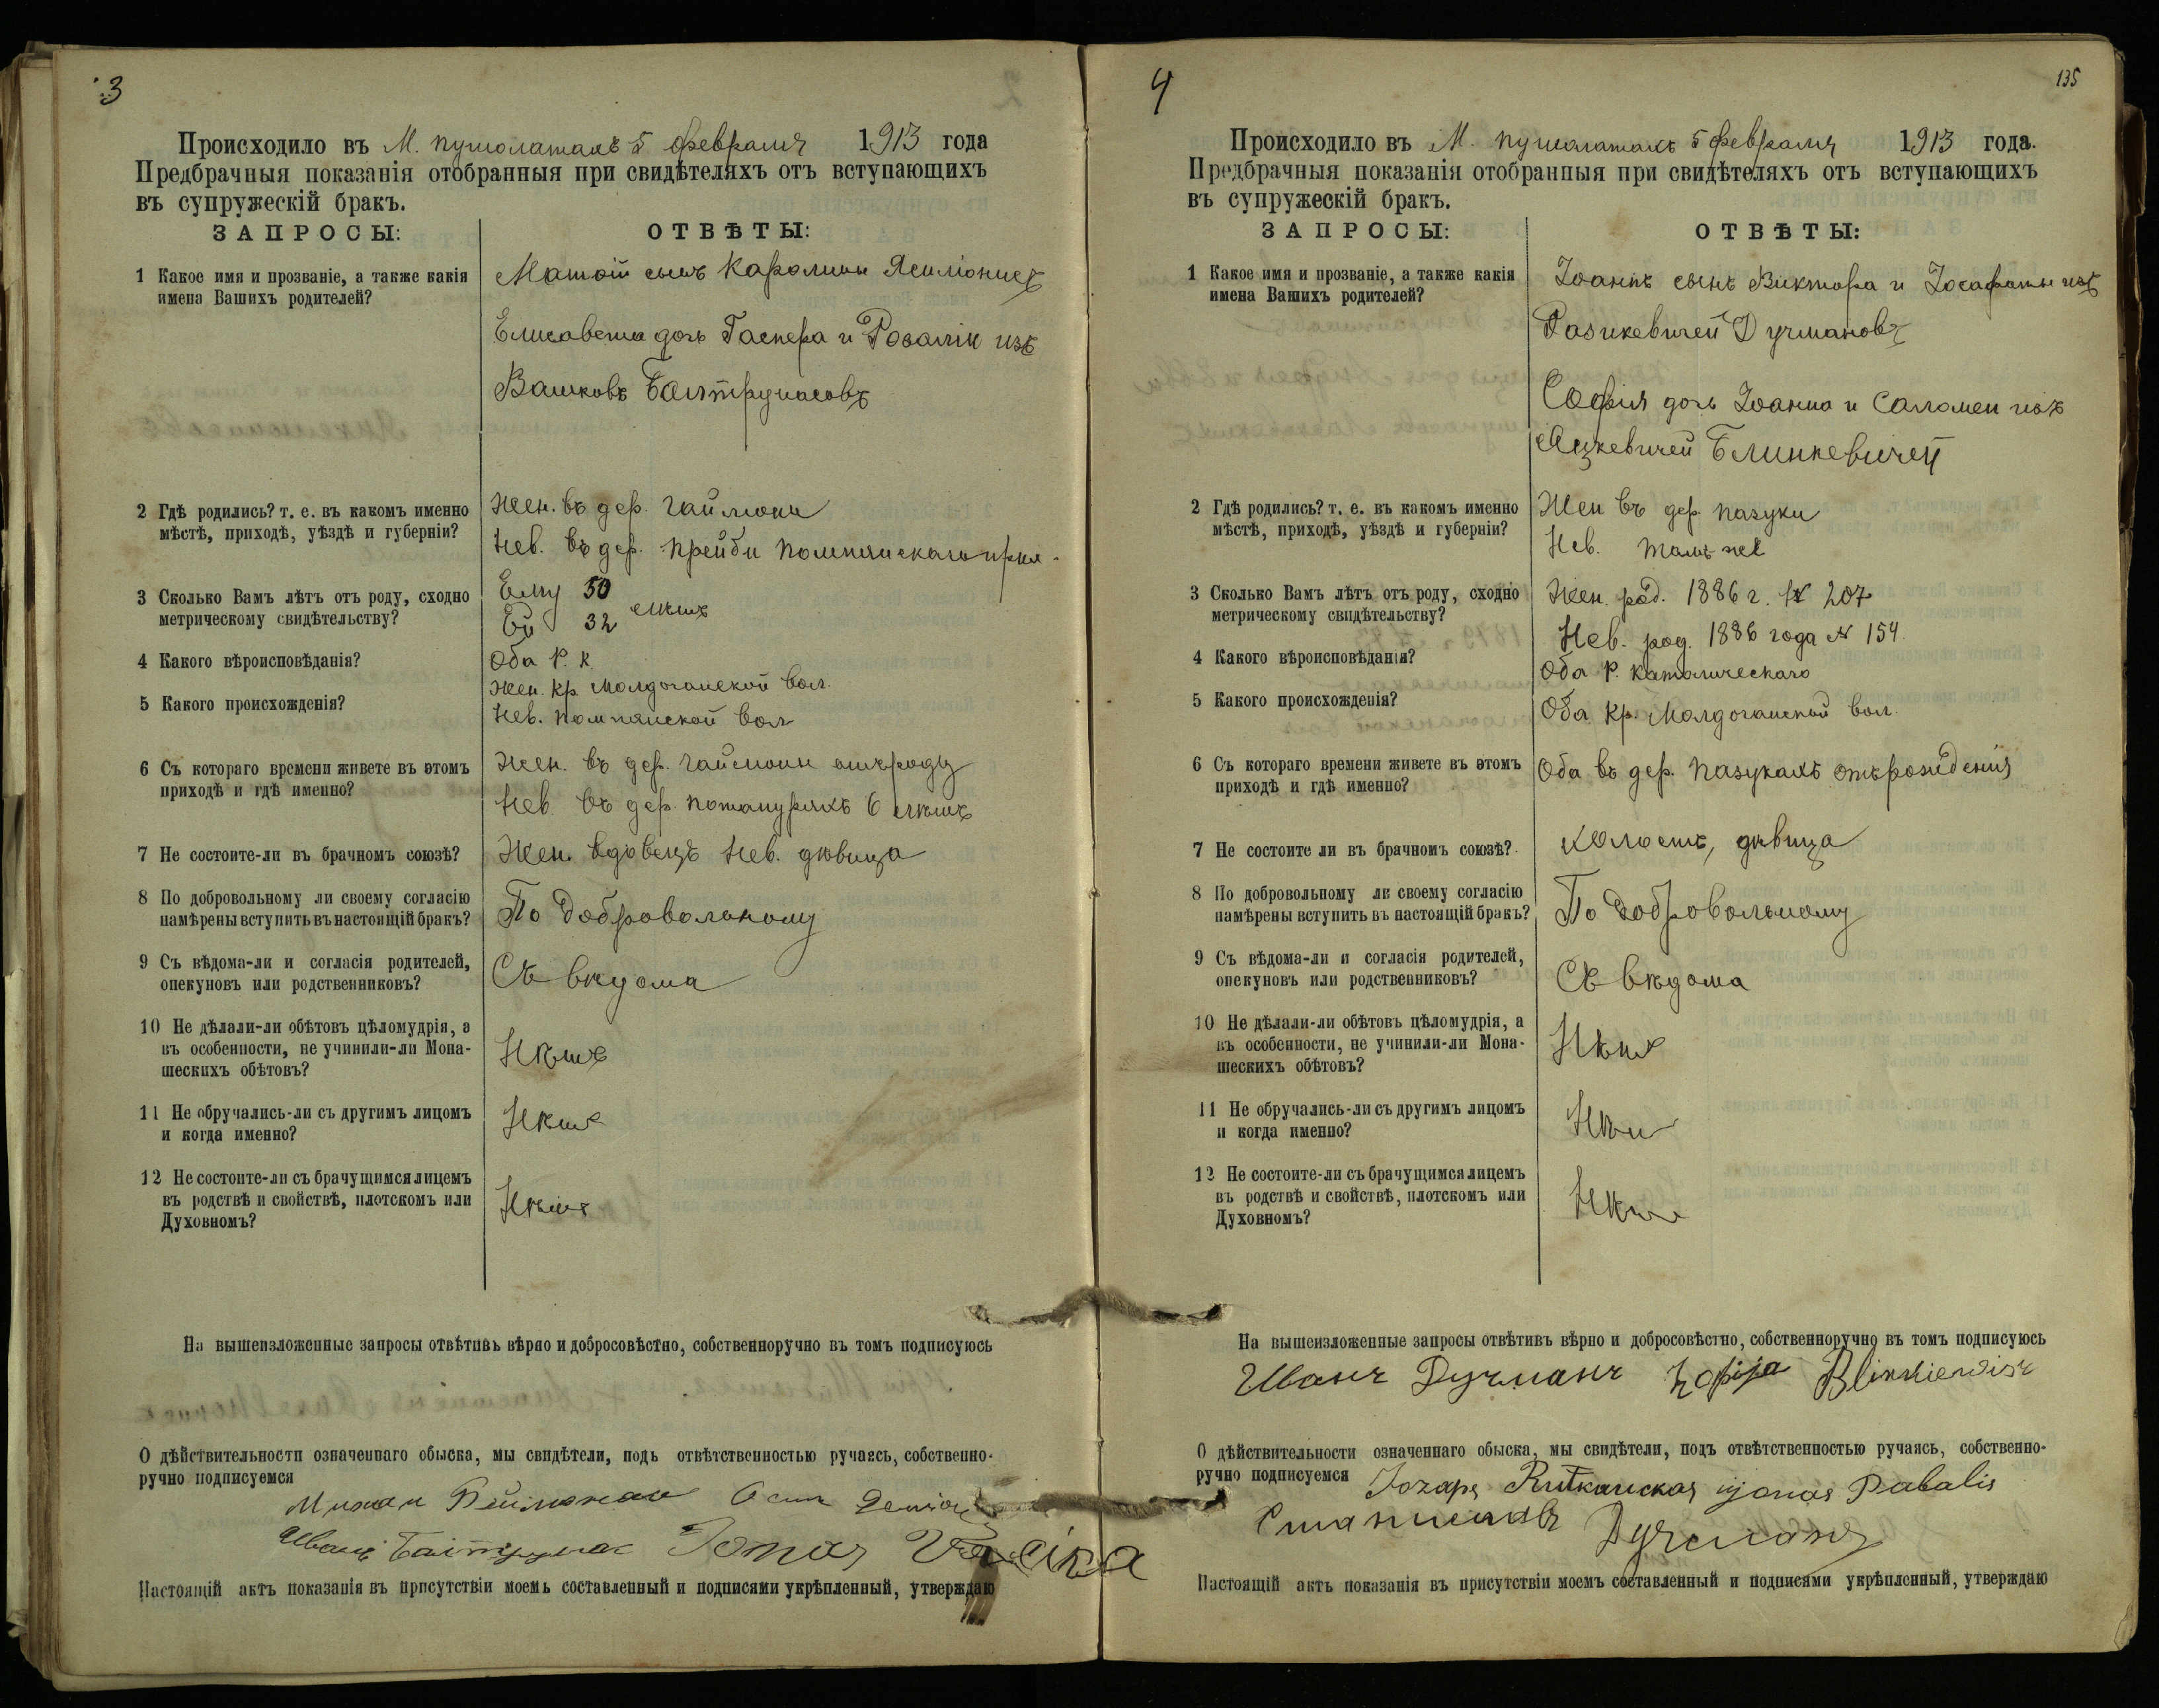 3
Происходило въ М. Пушолатахъ 5 февраля 1913 года
Предбрачныя показанія отобранныя при свидѣтеляхъ отъ вступающихъ
въ супружескій бракъ.
ЗАПРОСЫ: ОТВѢТЫ:
1 Какое имя и прозваніе, а также какія
имена Вашихъ родителей?
Матѳій сынъ Каролины
Елисавета дочь Гаспера и Розаліи изъ
Вашковъ Балтрунасовъ
2 Гдѣ родились? т. е. въ какомъ именно
мѣстѣ, приходѣ, уѣздѣ и губерніи?
Жен. въ дер. Гаймони
Нев. въ дер. Прейби Помпянскаго прих.
3 Сколько Вамъ лѣтъ отъ роду, сходно
метрическому свидѣтельству?
Ему 50
Ей 32 лѣтъ
4 Какого вѣроисповѣданія?
Оба Р. К.
5 Какого происхожденія?
Жен. кр. Молдочанской вол.
Нев. Помпянской вол
6 Съ котораго времени живете въ этомъ
приходѣ и гдѣ именно?
Жен. въ дер. Гаймони отъ роду
Нев. въ дер. 6 лѣтъ
7 Не состоите-ли въ брачномъ союзѣ?
Жен. вдовецъ Нев. дѣвица
8 По добровольному ли своему согласію
намѣрены вступить въ настоящій бракъ?
По добровольному
9 Съ вѣдома-ли и согласія родителей,
опекуновъ или родственниковъ?
Съ вѣдома
10 Не дѣлали-ли обѣтовъ цѣломудрія, а
въ особенности, не учинили-ли Мона-
шескихъ обѣтовъ?
Нѣтъ
11 Не обручались-ли съ другимъ лицомъ
и когда именно?
Нѣтъ
12 Не состоите-ли съ брачущимся лицемъ
въ родствѣ и свойствѣ, плотскомъ или
Духовномъ?
Нѣтъ
На вышеизложенные запросы отвѣтивъ вѣрно и добросовѣстно, собственноручно въ томъ подписуюсь
О дѣйствительности означеннаго обыска, мы свидѣтели, подъ отвѣтственностью ручаясь, собственно-
ручно подписуемся
Иванъ Балтрунас
Настоящій актъ показанія въ присутствіи моемъ составленный и подписями укрѣпленный, утверждаю
4
135
Происходило въ М. Пушолатахъ 5 февраля 1913 года.
Предбрачныя показанія отобранныя при свидѣтеляхъ отъ вступающихъ
въ супружескій бракъ.
ЗАПРОСЫ: ОТВѢТЫ:
1 Какое имя и прозваніе, а также какія
имена Вашихъ родителей?
Іоаннъ сынъ Виктора и Іосафаты изъ
Разикевичей Дучмановъ
Софія дочь Іоанна и Саломеи изъ
Яцкевичей Блинкевичей
2 Гдѣ родились? т. е. въ какомъ именно
мѣстѣ, приходѣ, уѣздѣ и губерніи?
Жен въ дер. Пазуки
Нев. тамъ же
3 Сколько Вамъ лѣтъ отъ роду, сходно
метрическому свидѣтельству?
Жен. род. 1886 г. № 207
Нев. род. 1886 года № 154.
4 Какого вѣроисповѣданія?
Оба Р. Католическаго
5 Какого происхожденія?
Оба кр. Молдочанской вол.
6 Съ котораго времени живете въ этомъ
приходѣ и гдѣ именно?
Оба въ дер. Пазукахъ отъ рожденія
7 Не состоите ли въ брачномъ союзѣ?
холостъ, дѣвица
8 По добровольному ли своему согласію
намѣрены вступить въ настоящій бракъ?
По добровольному
9 Съ вѣдома-ли и согласія родителей,
опекуновъ или родственниковъ?
Съ вѣдома
10 Не дѣлали-ли обѣтовъ цѣломудрія, а
въ особенности, не учинили-ли Мона-
шескихъ обѣтовъ?
Нѣтъ
11 Не обручались-ли съ другимъ лицомъ
и когда именно?
Нѣтъ
12 Не состоите-ли съ брачущимся лицемъ
въ родствѣ и свойствѣ, плотскомъ или
Духовномъ?
Нѣтъ
На вышеизложенные запросы отвѣтивъ вѣрно и добросовѣстно, собственноручно въ томъ подписуюсь
Иванъ Дучманъ Zofija Blinkiewicz
О дѣйствительности означеннаго обыска, мы свидѣтели, подъ отвѣтственностью ручаясь, собственно-
ручно подписуемся
Jonas Pabalis
Станиславъ Дучманъ
Настоящій актъ показанія въ присутствіи моемъ составленный и подписями укрѣпленный, утверждаю